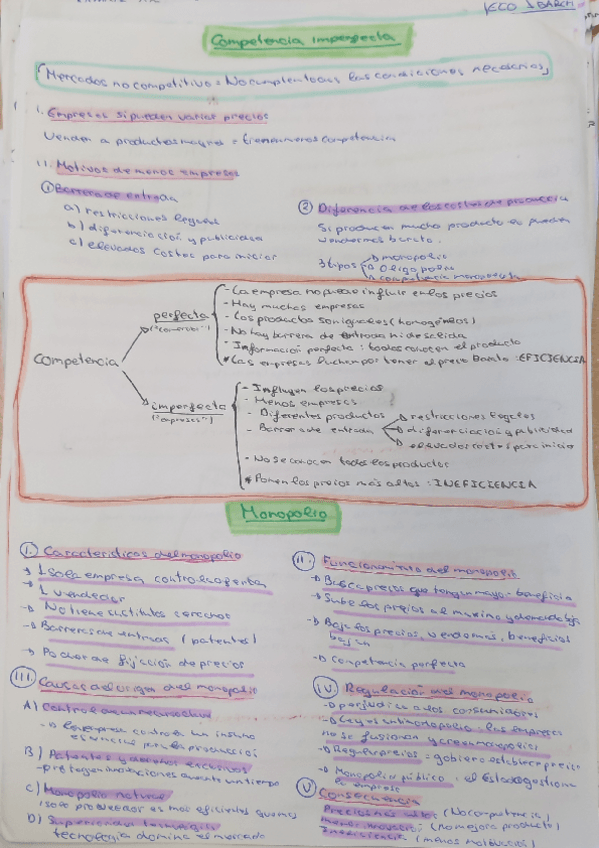 ECO 1 BACH
Competencia imperfecta
Mercados no competitivo = No cumplen todas las condiciones necesarias
I. Empresas si pueden variar precios
Venden a productos mayores = tienen menos competencia
II. Motivos de menos empresas
① Barrera de entrada
a) restricciones legales
b) diferenciación y publicidad
c) elevados costos para iniciar
② Diferencia de los costos de producción
Si producen mucho producto lo pueden
vender más barato.
3 tipos
monopolio
Oligopolio
competencia monopolista
Competencia
perfecta
- La empresa no puede influir en los precios
- Hay muchas empresas
- Los productos son iguales (homogéneos)
- No hay barrera de entrada ni de salida
- Información perfecta: todos conocen el producto
* Las empresas luchan por tener el precio barato: EFICIENCIA
imperfecta
("empresas")
- Influyen los precios
- Menos empresas
- Diferentes productos
- Barrera de entrada
restricciones legales
diferenciación y publicidad
elevados costos para inicio
- No se conocen todos los productos
* Ponen los precios más altos: INEFICIENCIA
Monopolio
I. Características del monopolio
→ 1 sola empresa controla oferta
→ 1 vendedor
→ No tiene sustitutos cercanos
→ Barreras de entrada (patentes)
→ Poder de fijación de precios
II. Funcionamiento del monopolio
→ Busca precios que tengan mayor beneficio
→ Sube los precios al máximo y demanda baja
→ Baja los precios, vende más, beneficios
bajan
→ Competencia perfecta
III. Causas del origen del monopolio
A) Control de un recurso clave
→ La empresa controla un insumo
esencial para la producción
B) Patentes y derechos exclusivos
- protegen innovaciones durante un tiempo
C) Monopolio natural
1 solo proveedor es más eficiente que más
D) Superioridad tecnológica
tecnología domina el mercado
IV. Regulación del monopolio
→ perjudica a los consumidores
→ Leyes antimonopolio: las empresas
no se fusionan y crean monopolios
→ Regular precios = gobierno establece precio
→ Monopolio público: el Estado gestiona
la empresa
V Consecuencia
Precios más altos (No competencia)
menor innovación (no mejora producto)
Ineficiencia (menos motivación)